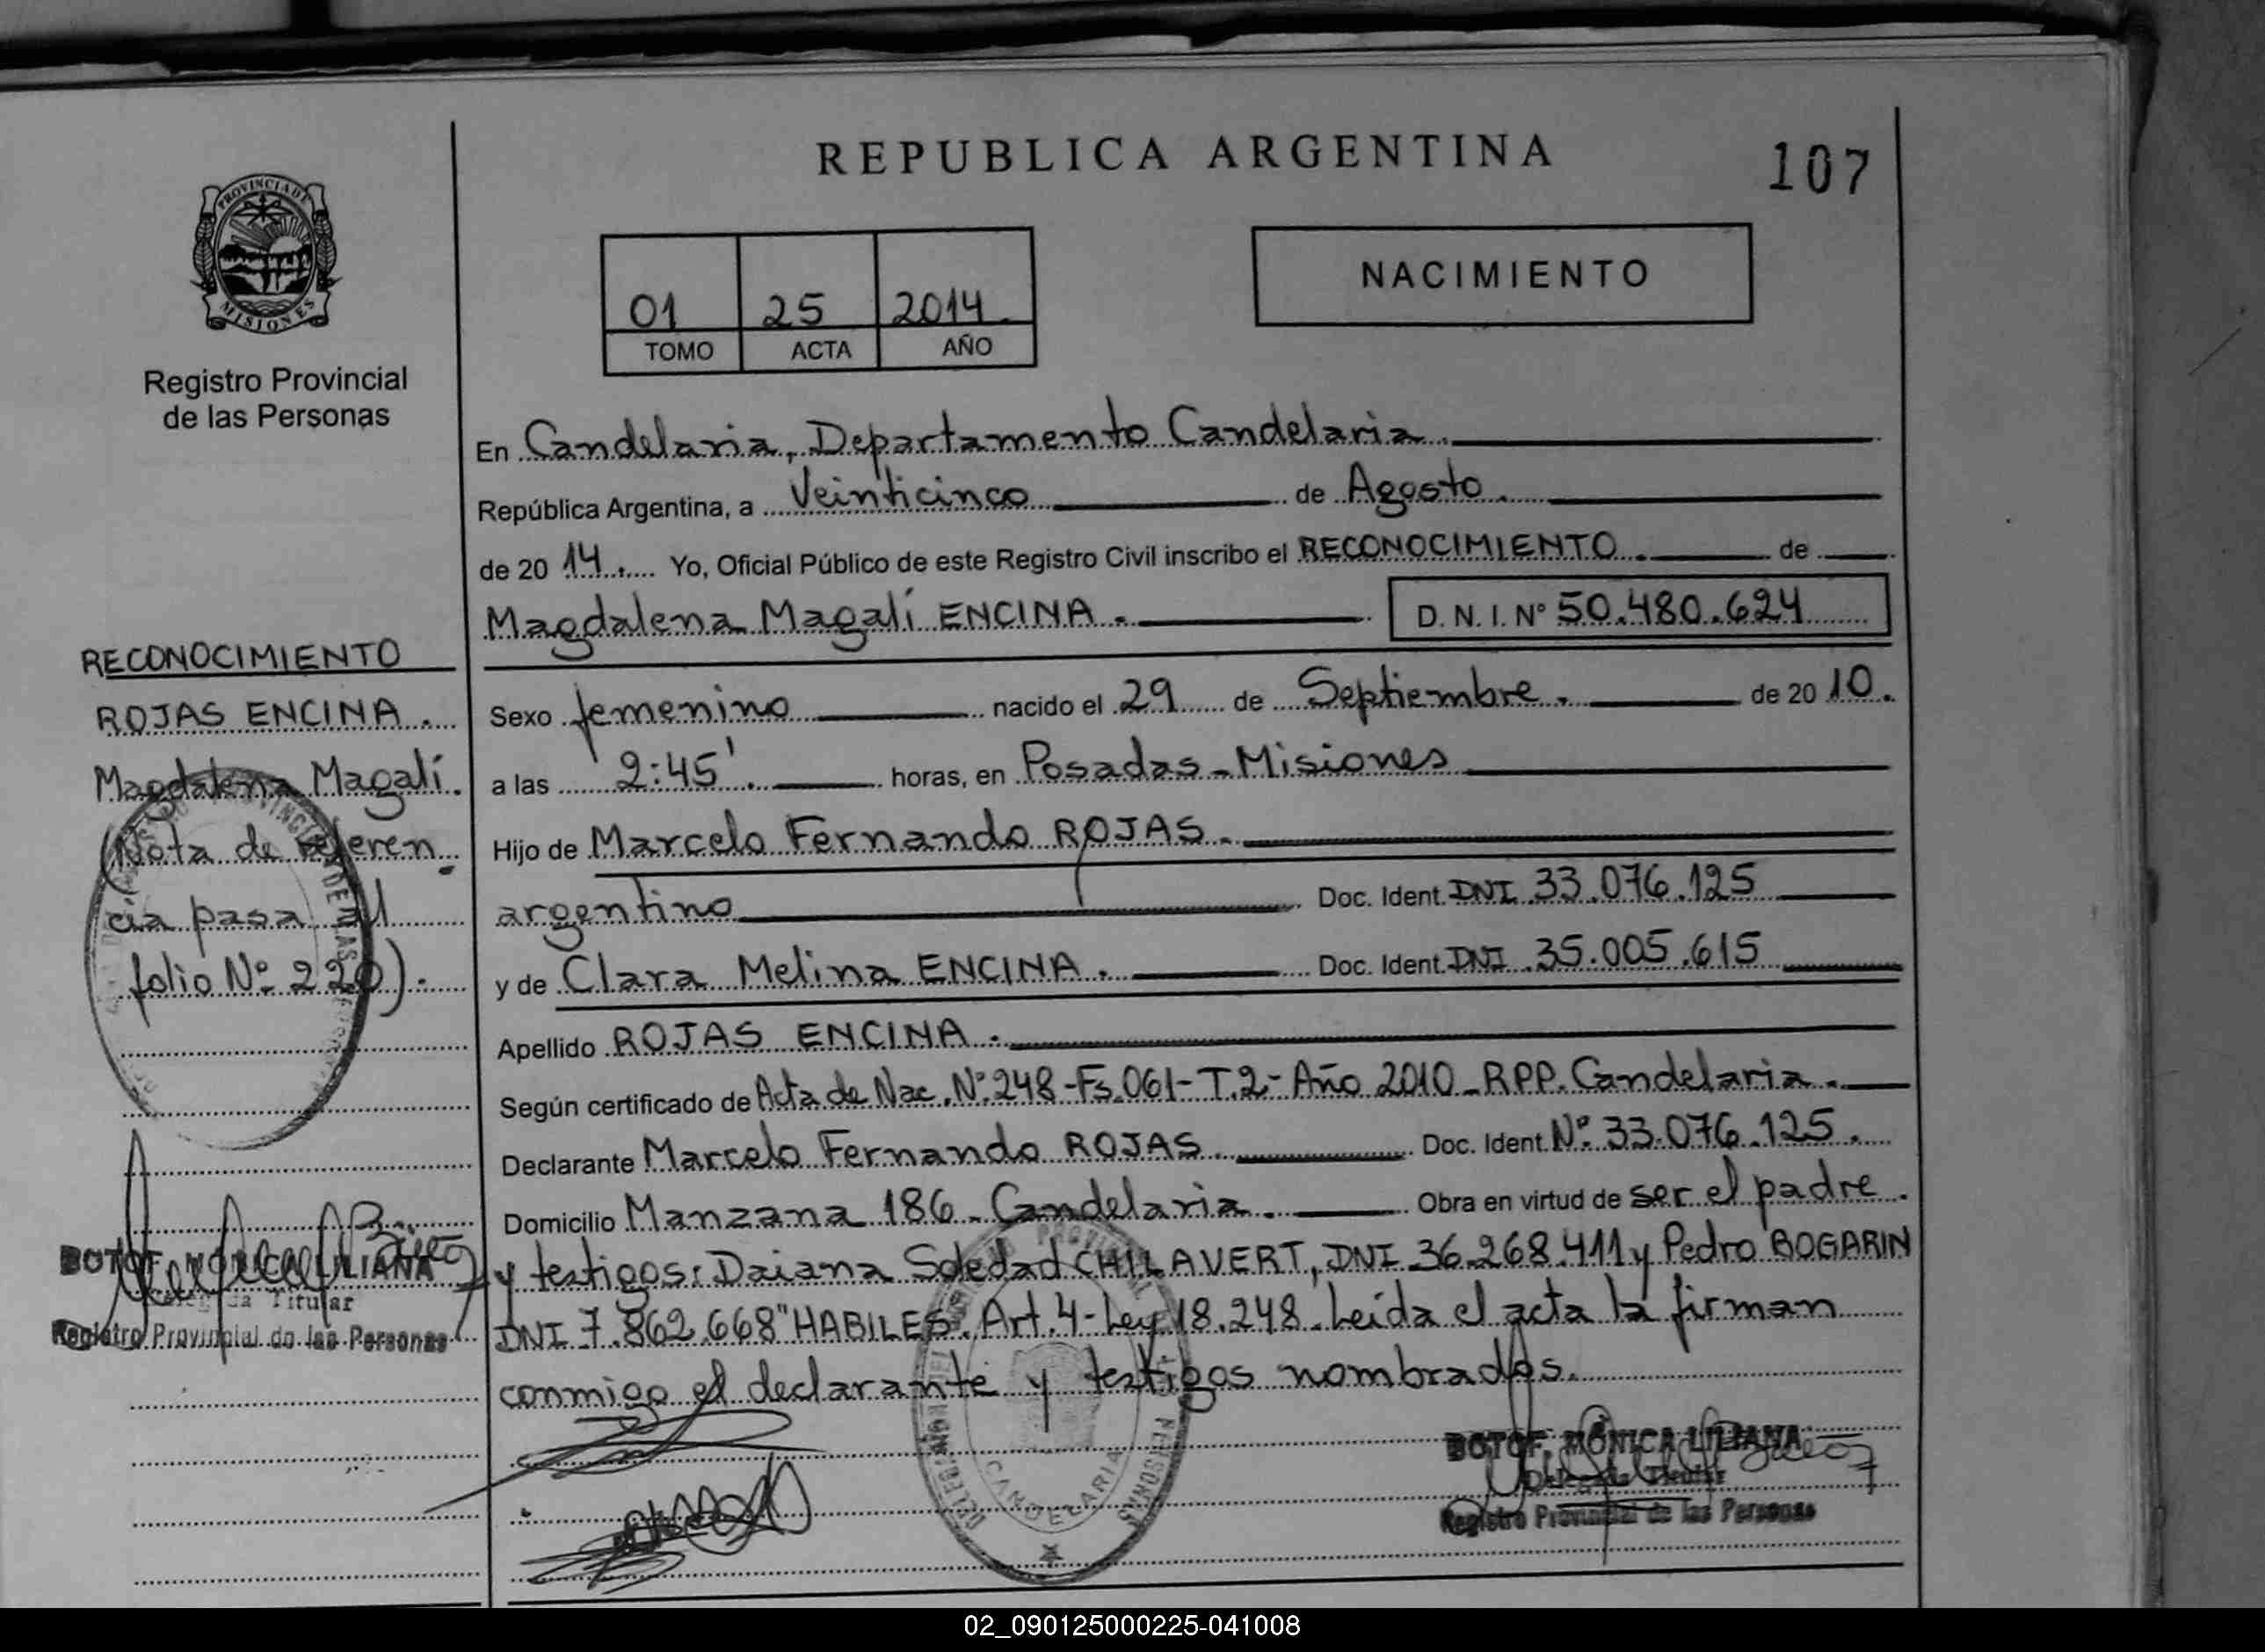 REPUBLICA ARGENTINA
107
PROVINCIA DE
MISIONES
Registro Provincial
de las Personas
01 25 2014
TOMO ACTA AÑO
NACIMIENTO
En Candelaria, Departamento Candelaria.
República Argentina, a Veinticinco de Agosto.
de 20 14. Yo, Oficial Público de este Registro Civil inscribo el RECONOCIMIENTO. de
Magdalena Magalí ENCINA. D. N. I. N° 50.480.624
Sexo femenino nacido el 29 de Septiembre. de 20 10.
a las 2:45'. horas, en Posadas-Misiones
Hijo de Marcelo Fernando ROJAS.
argentino Doc. Ident. DNI 33.076.125
y de Clara Melina ENCINA. Doc. Ident. DNI 35.005.615
Apellido ROJAS ENCINA.
Según certificado de Acta de Nac. N° 248-Fs.061-T.2-Año 2010-RPP.Candelaria.
Declarante Marcelo Fernando ROJAS. Doc. Ident. N° 33.076.125.
Domicilio Manzana 186-Candelaria. Obra en virtud de ser el padre.
y testigos: Daiana Soledad CHILAVERT, DNI 36.268.411 y Pedro BOGARIN
DNI 7.862.668 "HABILES. Art.4-Ley 18.248. Leída el acta la firman
conmigo el declarante y testigos nombrados.
RECONOCIMIENTO
ROJAS ENCINA.
Magdalena Magalí.
(Nota de referen
cia pasa al
folio N° 220).
BOTOF, MONICA LILIANA
Delegada Titular
Registro Provincial de las Personas
CANDELARIA
BOTOF, MÓNICA LILIANA
Delegada Titular
Registro Provincial de las Personas
02_090125000225-041008